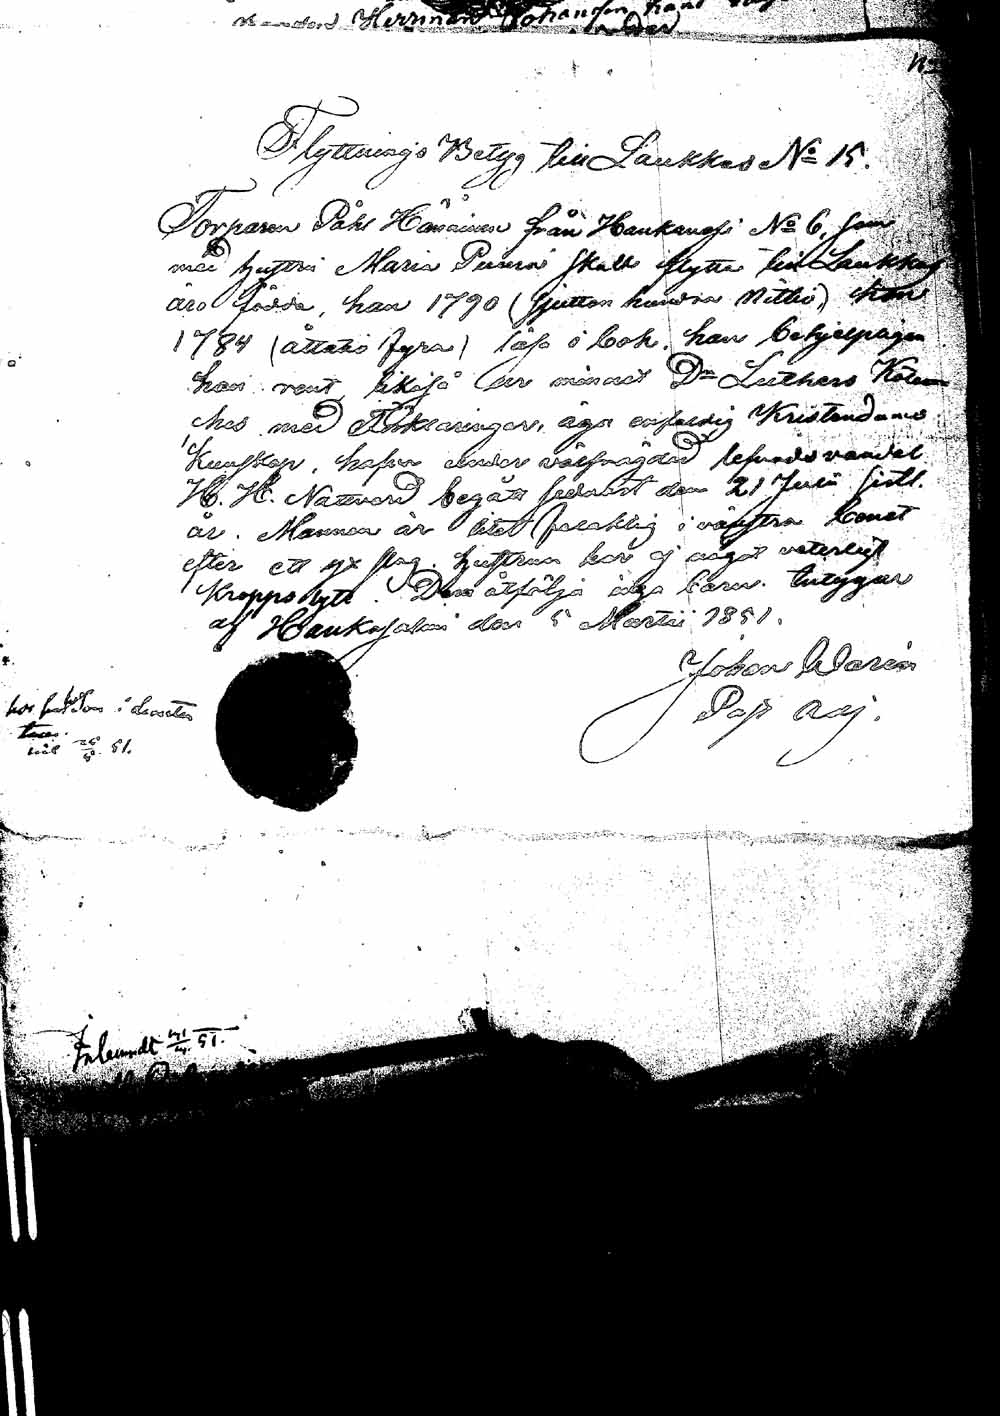 Herrman Johansson hans
Flyttnings Betyg till Laukkas No 15.
Torparen Påhl Hänninen från Haukamäki No 6, som
med hustru Maria Purra skall flytta till Laukkas
äro födde, han 1790 (sjutton hundra Nittio) hon
1784 (åttatio fyra) läsa i bok, han behjelpligen
hon rent, likaså ur minnet Dr Luthers Kate-
ches med Förklaringar, äga enfaldig Kristendoms
kunskap, hafva under välfrägdad lefnads vandel
H. H. Nattvard begått sednast den 21 Julii sistl.
år. Mannen är litet ofärdig i vänstra benet
efter ett yx slag. hustrun har ej något veterligt
Kropps lyte. Dem åtfölja inga barn. betygar
af Hankasalmi den 5 Martii 1851.
Johan Walerin
Past. adj.
51.
Inlemndt 51.